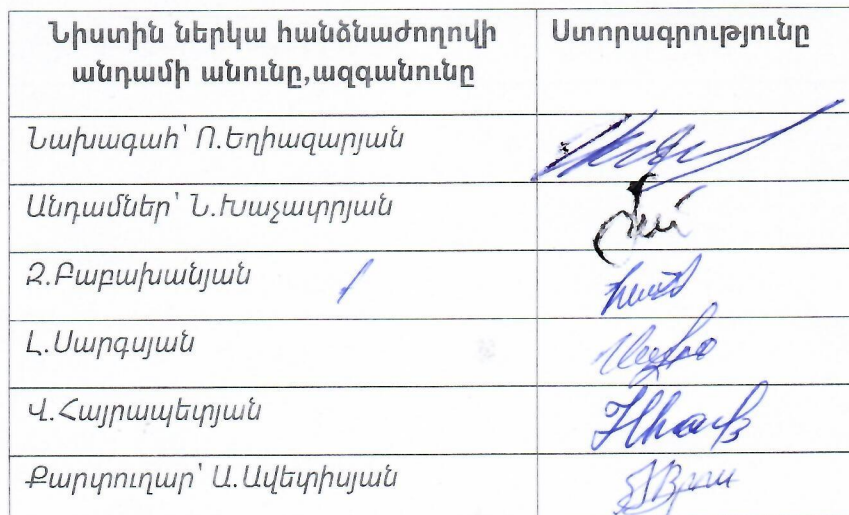 Նիստին ներկա հանձնաժողովի Ստորագրությունը
անդամի անունը,ազգանունը
Նախագահ՝ Ո.Եղիազարյան
Անդամներ՝ Ն.Խաչատրյան
Զ.Բաբախանյան
Լ.Սարգսյան
Վ.Հայրապետյան
Քարտուղար՝ Ա.Ավետիսյան